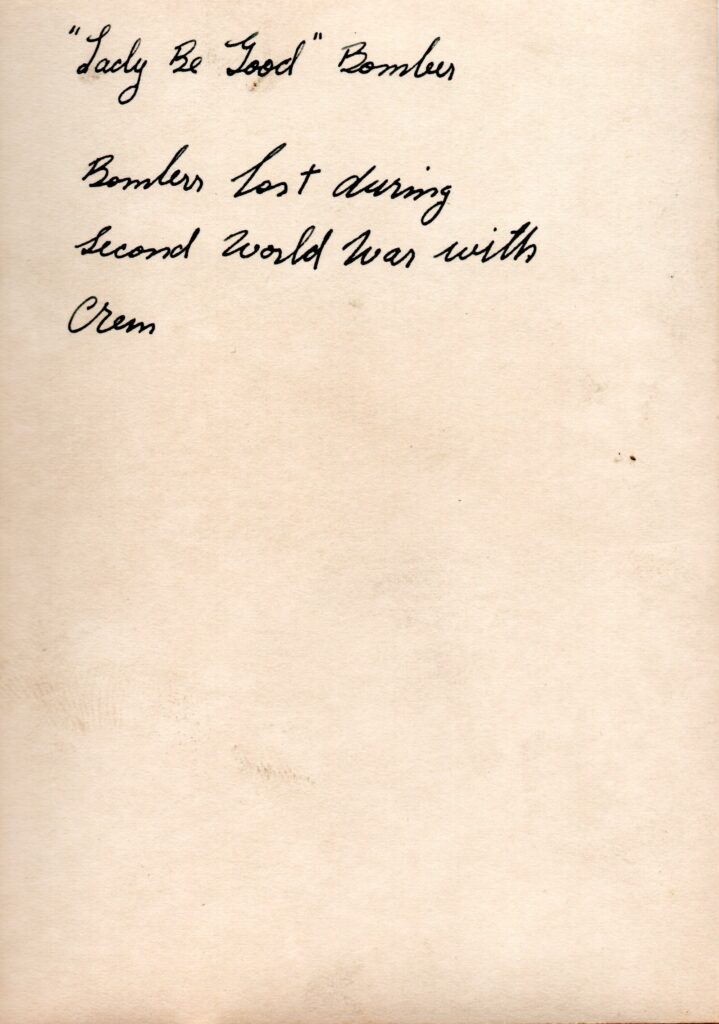 "Lady Be Good" Bomber
Bombers lost during
Second World War with
Crew